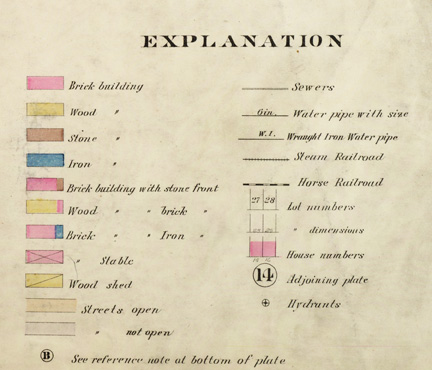 EXPLANATION
Brick building
Wood "
Stone "
Iron "
Brick building with stone front
Wood " " brick "
Brick " " Iron "
" Stable
Wood shed
Streets open
" not open
B See reference note at bottom of plate
Sewers
6in. Water pipe with size
W.I. Wraught Iron Water pipe
Steam Railroad
Horse Railroad
27 28 Lot numbers
" dimensions
House numbers
14 Adjoining plate
Hydrants